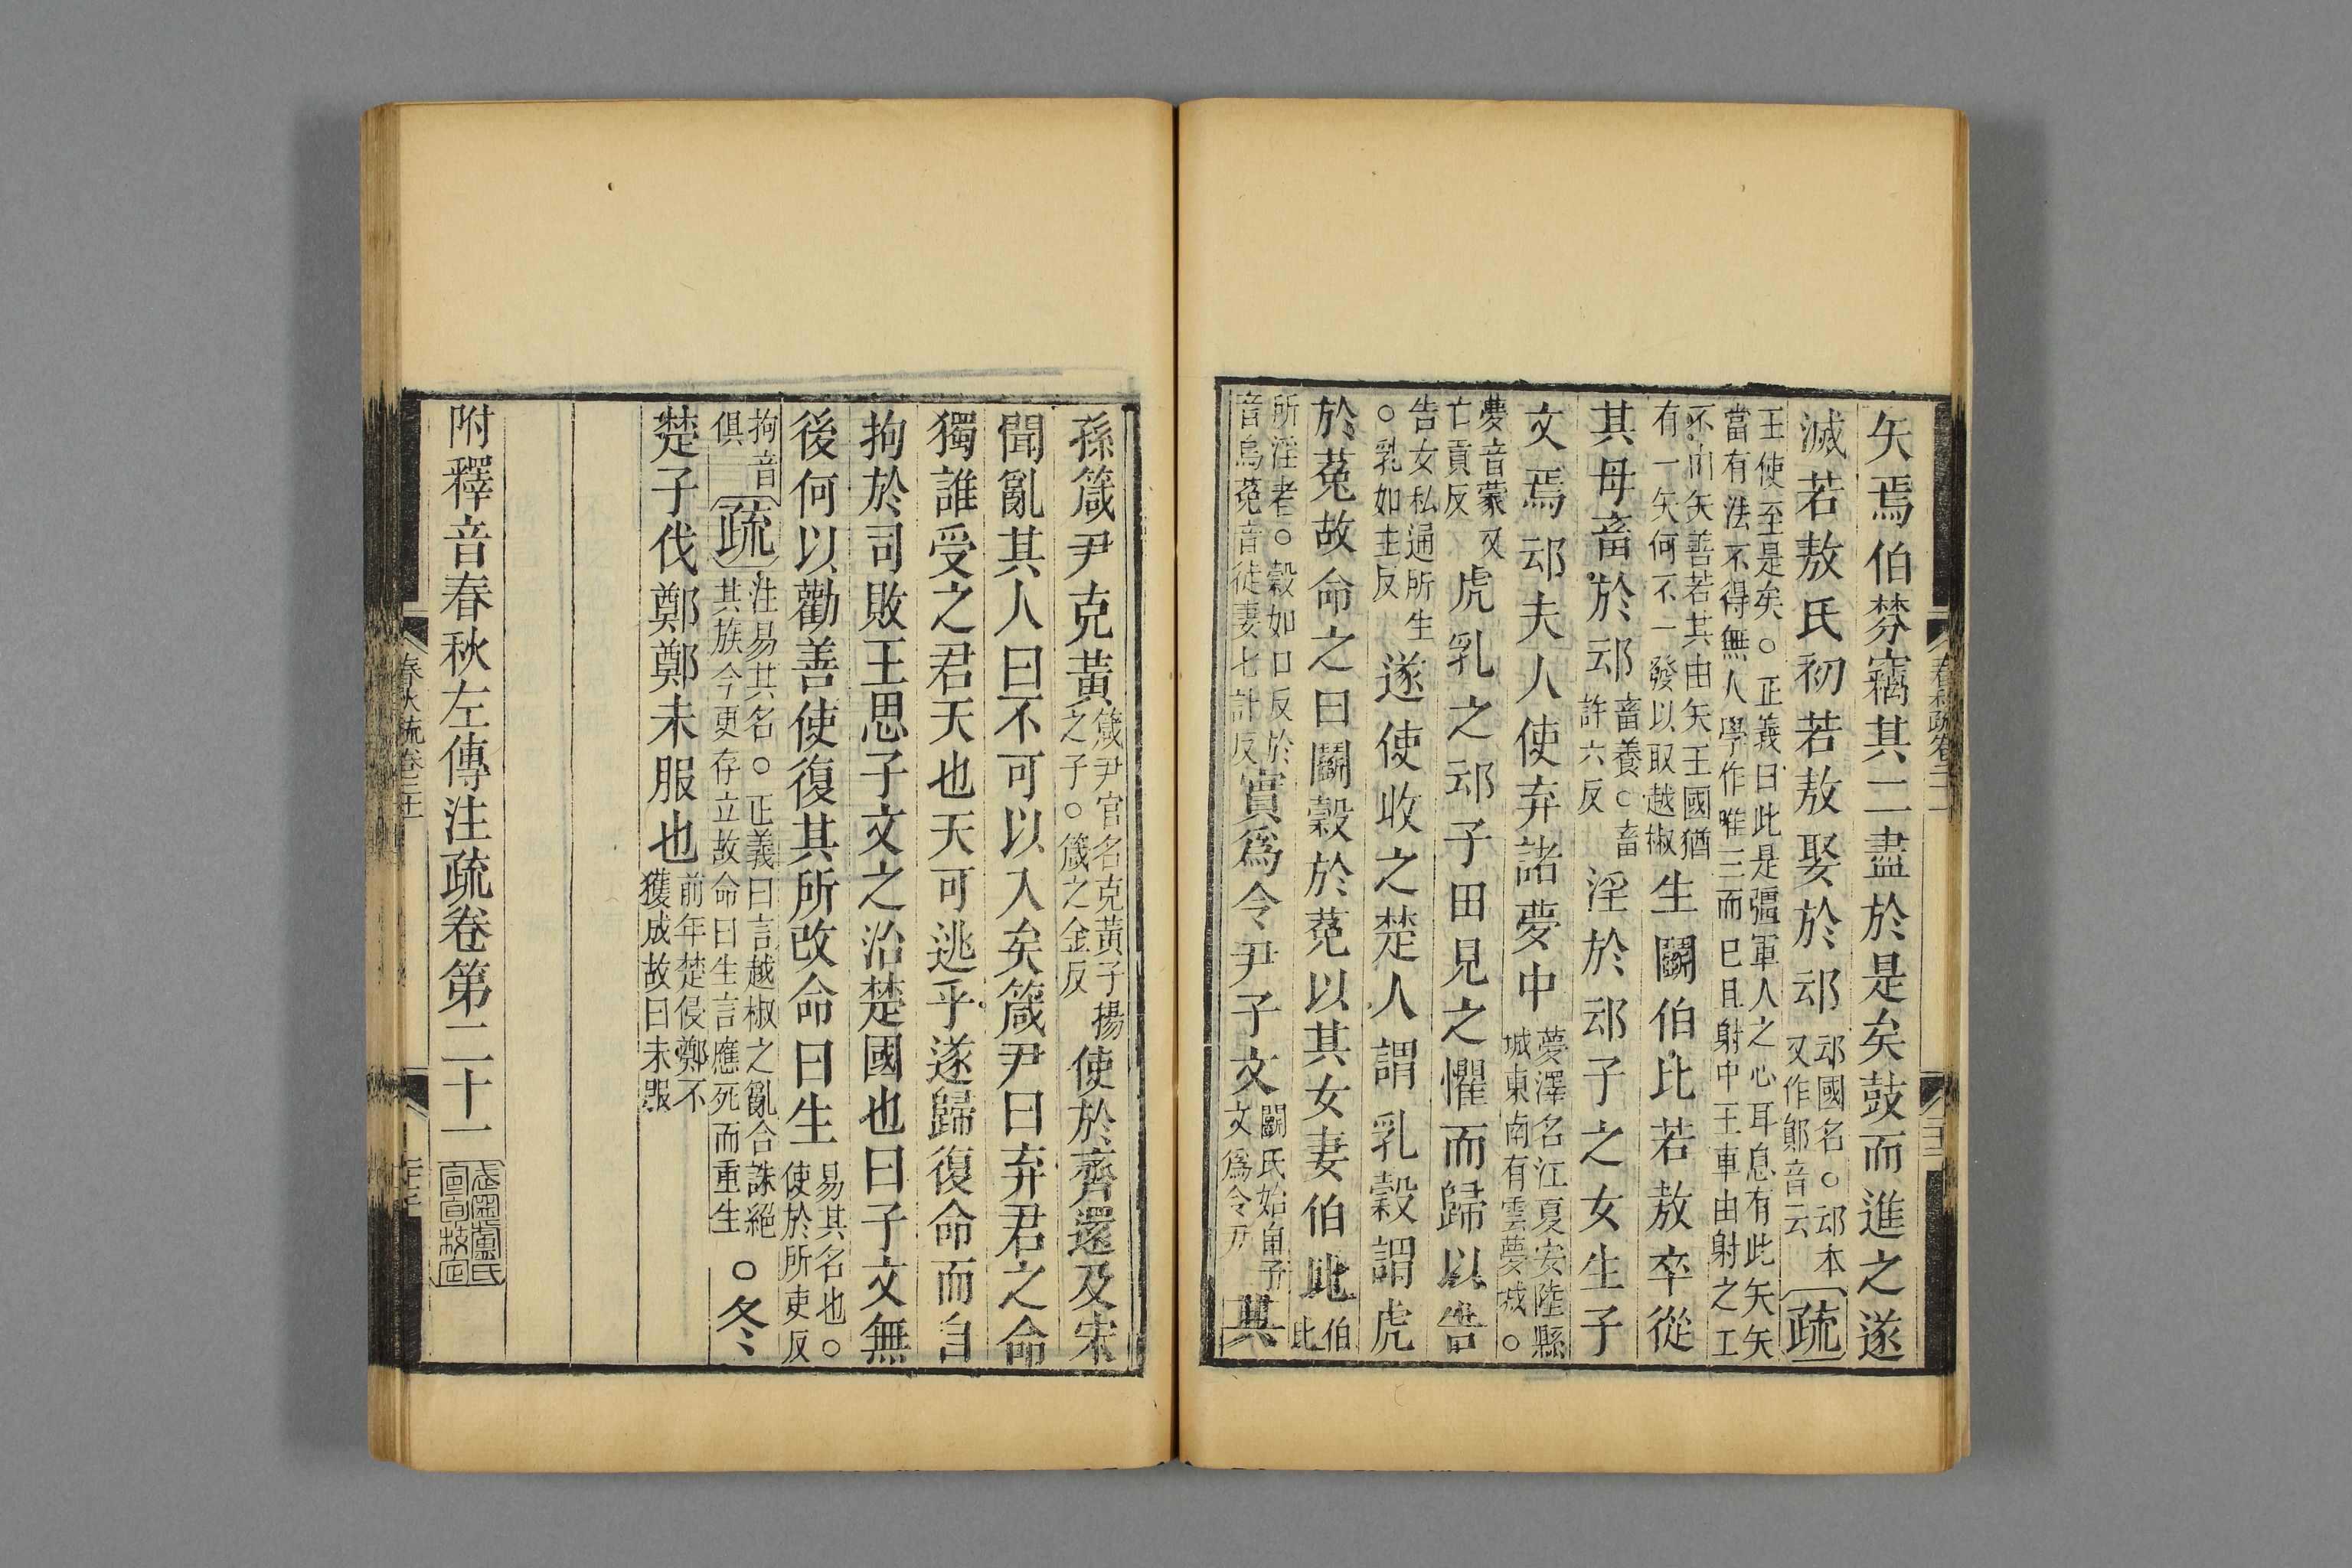 矢焉伯棼竊其二盡於是矣鼓而進之遂
滅若敖氏初若敖娶於䢵䢵國名○䢵本又作鄖音云疏
王使至是矣○正義曰此是彊軍人之心耳息有此矢矢
當有法不得無人學作唯三而已且射中王車由射之工
不由矢善若其由矢王國猶
有一矢何不一發以取越椒生鬭伯比若敖卒從
其母畜於䢵畜養○畜許六反淫於䢵子之女生子
文焉䢵夫人使弃諸夢中夢澤名江夏安陸縣城東南有雲夢城○
夢音蒙又亡貢反虎乳之䢵子田見之懼而歸以告
告女私通所生○乳如主反遂使收之楚人謂乳穀謂虎
於菟故命之曰鬭穀於菟以其女妻伯比伯比
所淫者○穀如口反於音烏菟音徒妻七計反實爲令尹子文鬭氏始自子文爲令尹其
孫箴尹克黃箴尹官名克黃子揚之子○箴之金反使於齊還及宋
聞亂其人曰不可以入矣箴尹曰弃君之命
獨誰受之君天也天可逃乎遂歸復命而自
拘於司敗王思子文之治楚國也曰子文無
後何以勸善使復其所改命曰生易其名也○使於所吏反
拘音俱疏注易其名○正義曰言越椒之亂合誅絕其族今更存立故命曰生言應死而重生○冬
楚子伐鄭鄭未服也前年楚侵鄭不獲成故曰未服
附釋音春秋左傳注疏卷第二十一